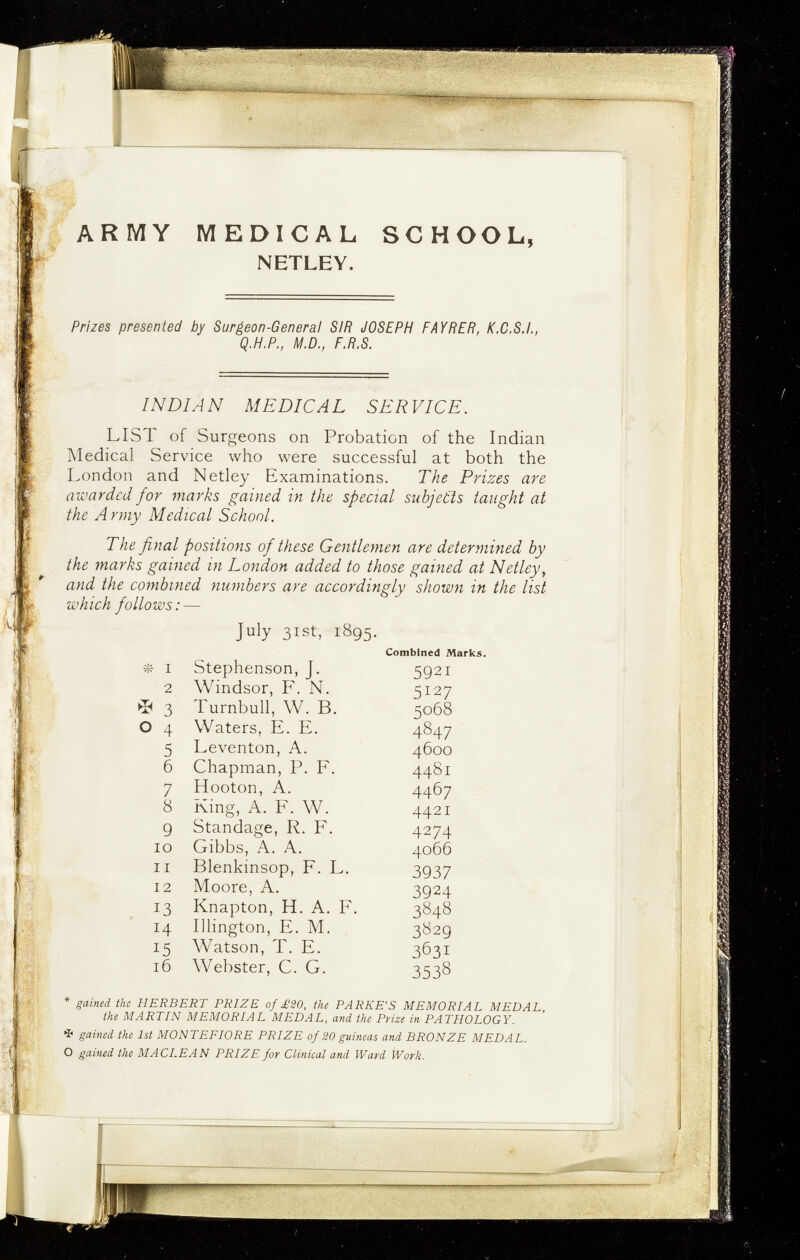 ARMY MEDICAL SCHOOL,
NETLEY.
Prizes presented by Surgeon-General SIR JOSEPH FAYRER, K.C.S.I.,
Q.H.P., M.D., F.R.S.
INDIAN MEDICAL SERVICE.
LIST of Surgeons on Probation of the Indian
Medical Service who were successful at both the
London and Netley Examinations. The Prizes are
awarded for marks gained in the special subjects taught at
the Army Medical School.
The final positions of these Gentlemen are determined by
the marks gained in London added to those gained at Netley,
and the combined numbers are accordingly shown in the list
which follows:—
July 31st, 1895.
Combined Marks.
* 1 Stephenson, J. 5921
2 Windsor, F. N. 5127
✠ 3 Turnbull, W. B. 5068
O 4 Waters, E. E. 4847
5 Leventon, A. 4600
6 Chapman, P. F. 4481
7 Hooton, A. 4467
8 King, A. F. W. 4421
9 Standage, R. F. 4274
10 Gibbs, A. A. 4066
11 Blenkinsop, F. L. 3937
12 Moore, A. 3924
13 Knapton, H. A. F. 3848
14 Illington, E. M. 3829
15 Watson, T. E. 3631
16 Webster, C. G. 3538
* gained the HERBERT PRIZE of £20, the PARKE'S MEMORIAL MEDAL,
the MARTIN MEMORIAL MEDAL, and the Prize in PATHOLOGY.
✠ gained the 1st MONTEFIORE PRIZE of 20 guineas and BRONZE MEDAL.
O gained the MACLEAN PRIZE for Clinical and Ward Work.